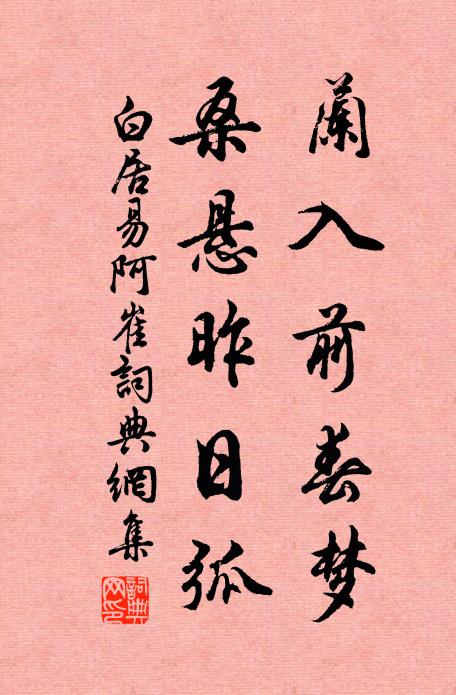 蘭入前春梦
桑悬昨日弧
白居易阿崔詞典網集
詞典网印